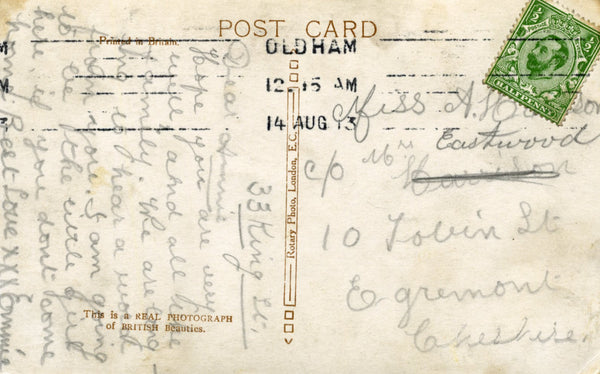 POST CARD
Printed in Britain.
OLDHAM
12.15 AM
14 AUG 13
HALFPENNY
Miss A. Harrison
Eastwood
c/o Mrs Harrison
10 Tobin St
Egremont
Cheshire.
33 King St.,
Dear Annie
Hope you are very
well and all the
family. We are
to hear a word
from you. I am going
to be the girl
here if you dont come
home Best Love xxx Emmie
Rotary Photo, London, E.C.
This is a REAL PHOTOGRAPH
of BRITISH Beauties.